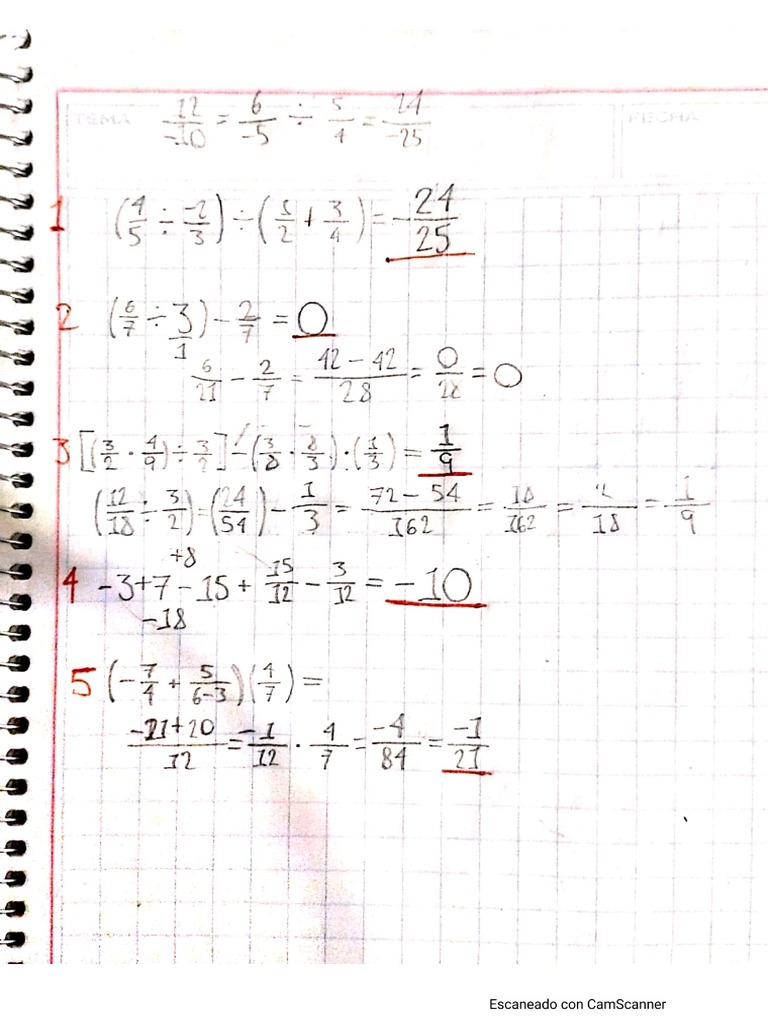 TEMA FECHA
12/-10 = 6/-5 ÷ 5/4 = 24/-25
1 (4/5 ÷ -2/3) ÷ (1/2 + 3/4) = -24/25
2 (6/7 ÷ 3/1) - 2/7 = 0
6/21 - 2/7 = 42 - 42/28 = 0/28 = 0
3 [(3/2 · 4/9) ÷ 3/2] - (3/8 · 8/3) · (1/3) = 1/9
(12/18 ÷ 3/2) = (24/54) - 1/3 = 72 - 54/162 = 18/162 = /18 = 1/9
+8
4 -3+7 - 15 + 15/12 - 3/12 = -10
-18
5 (-7/4 + 5/6-3)(4/7) =
-21+20/12 = -1/12 · 4/7 = -4/84 = -1/21
Escaneado con CamScanner